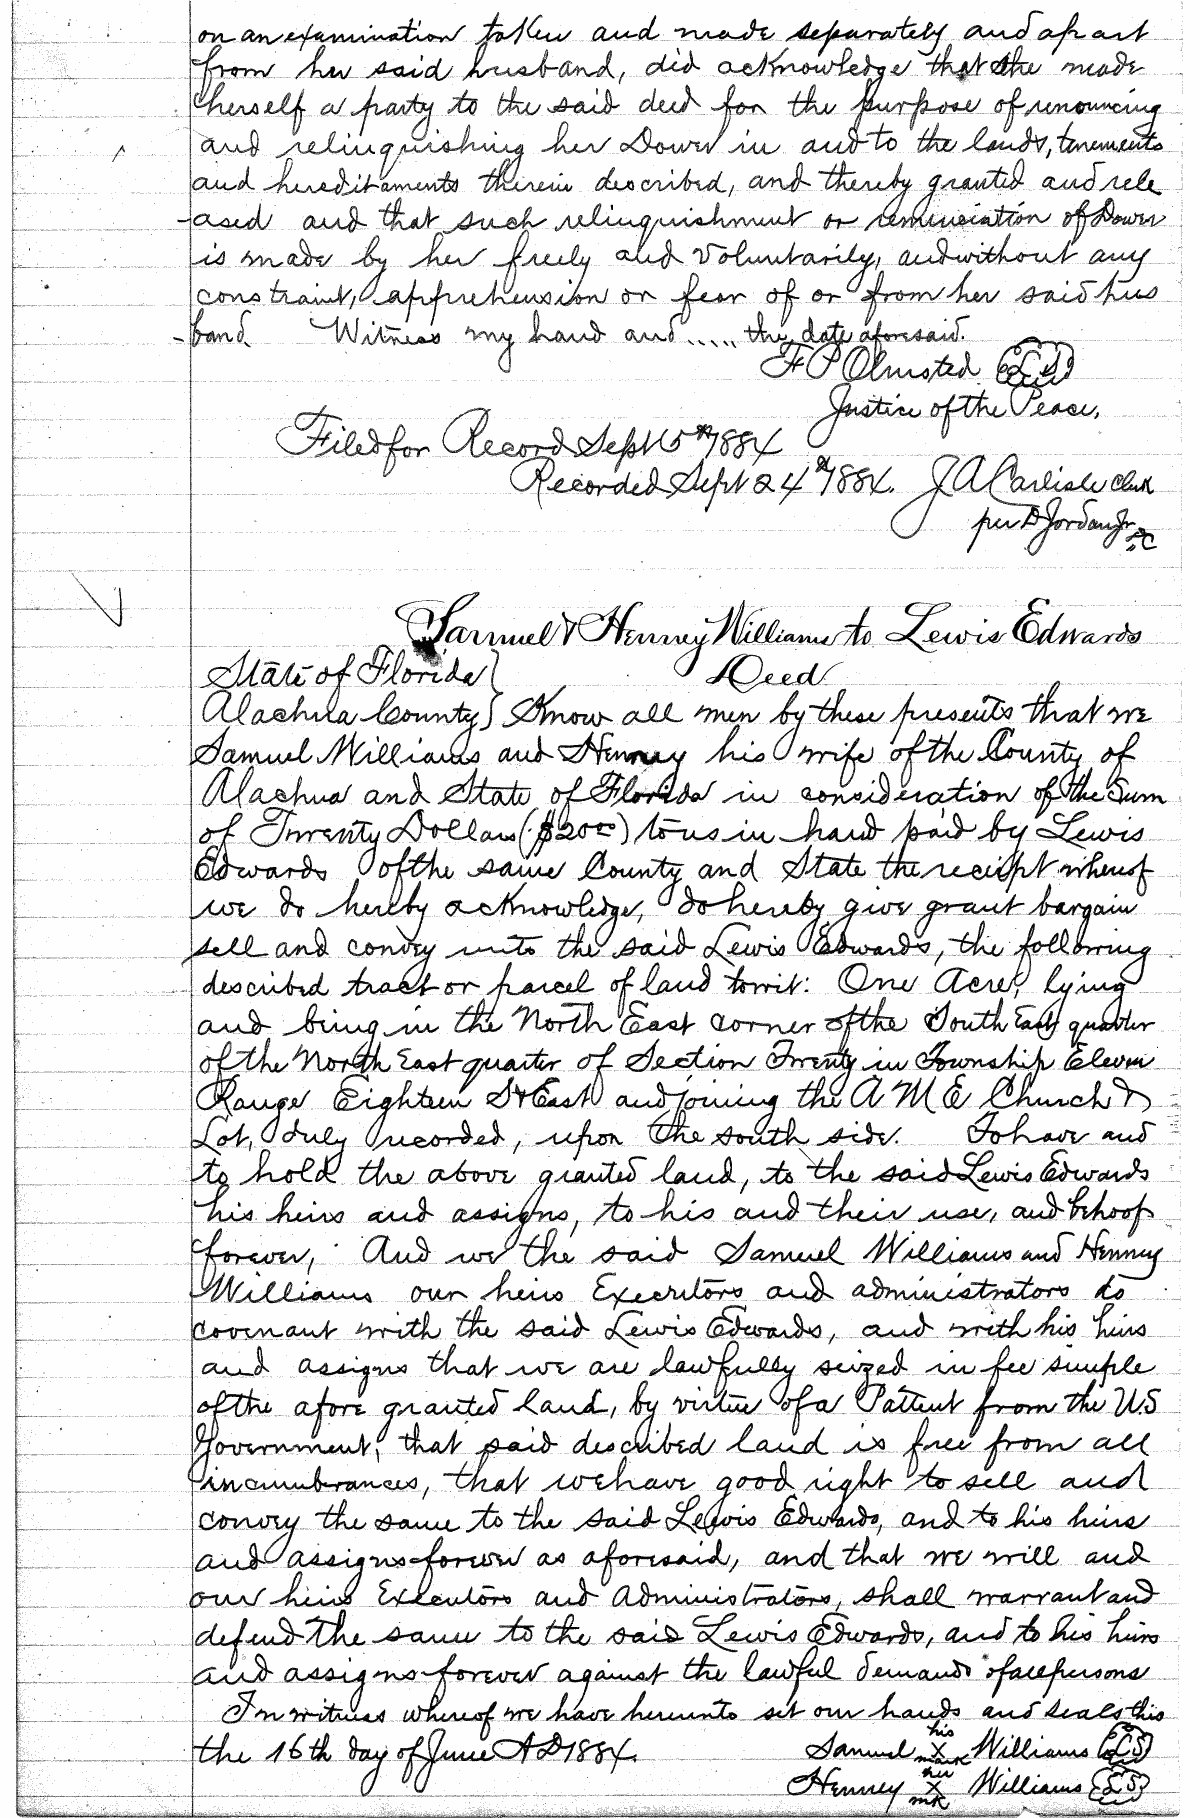 on an examination taken and made separately and apart
from her said husband, did acknowledge that she made
herself a party to the said deed for the purpose of renouncing
and relinquishing her Dower in and to the lands, tenements
and hereditaments therein described, and thereby granted and rele
-ased and that such relinquishment or renunciation of Dower
is made by her freely and voluntarily, and without any
constraint, apprehension or fear of or from her said hus
-band. Witness my hand and ..... the date aforesaid.
F P Olmsted (L S)
Justice of the Peace.
Filed for Record Sept 15th 1884
Recorded Sept 24th 1884. J A Carlisle Clerk
per D Jordan Jr
DC
Samuel & Henney Williams to Lewis Edwards
State of Florida } Deed
Alachua County } Know all men by these presents that we
Samuel Williams and Henney his wife of the County of
Alachua and State of Florida in consideration of the Sum
of Twenty Dollars ($20 00) to us in hand paid by Lewis
Edwards of the same County and State the receipt whereof
we do hereby acknowledge, do hereby give grant bargain
sell and convey unto the said Lewis Edwards, the following
described tract or parcel of land towit: One Acre, lying
and being in the North East corner of the South East quarter
of the North East quarter of Section Twenty in Township Eleven
Range Eighteen S & East and joining the A M E Church &
Lot, duly recorded, upon the south side. To have and
to hold the above granted land, to the said Lewis Edwards
his heirs and assigns, to his and their use, and behoof
forever, And we the said Samuel Williams and Henney
Williams our heirs Executors and administrators do
covenant with the said Lewis Edwards, and with his heirs
and assigns that we are lawfully seized in fee simple
of the afore granted land, by virtue of a Pattent from the U.S
Government, that said described land is free from all
incumberances, that we have good right to sell and
convey the same to the said Lewis Edwards, and to his heirs
and assigns forever as aforesaid, and that we will and
our heirs Executors and Administrators, shall warrant and
defend the same to the said Lewis Edwards, and to his heirs
and assigns forever against the lawful demands of all persons
In witness whereof we have hereunto set our hands and seals this
the 16th day of June A D 1884. Samuel his X mark Williams (L S)
Henney her X mk Williams (L S)